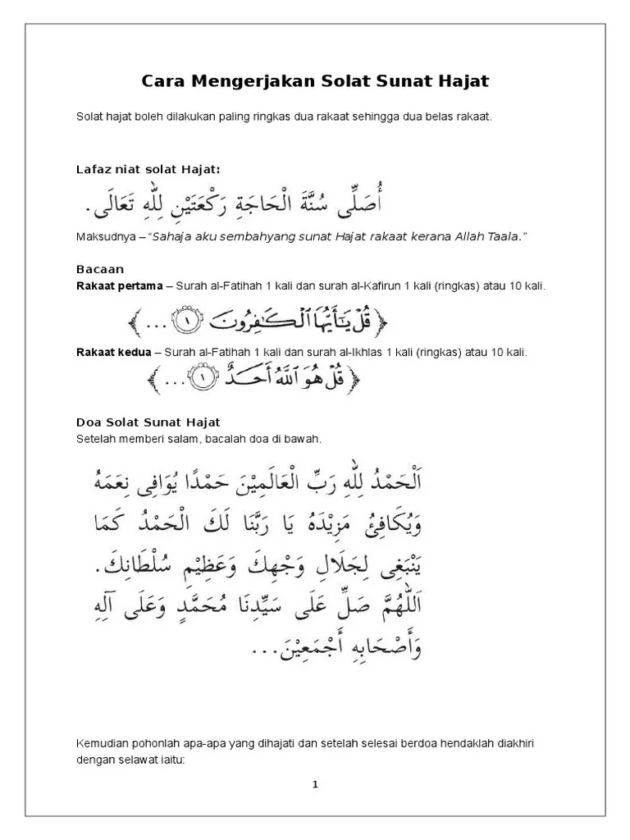 Cara Mengerjakan Solat Sunat Hajat
Solat hajat boleh dilakukan paling ringkas dua rakaat sehingga dua belas rakaat.
Lafaz niat solat Hajat:
أُصَلِّى سُنَّةَ الْحَاجَةِ رَكْعَتَيْنِ لِلّٰهِ تَعَالَى.
Maksudnya – “Sahaja aku sembahyang sunat Hajat rakaat kerana Allah Taala.”
Bacaan
Rakaat pertama – Surah al-Fatihah 1 kali dan surah al-Kafirun 1 kali (ringkas) atau 10 kali.
﴿ قُلْ يَـٰٓأَيُّهَا ٱلْكَـٰفِرُونَ ١ ... ﴾
Rakaat kedua – Surah al-Fatihah 1 kali dan surah al-Ikhlas 1 kali (ringkas) atau 10 kali.
﴿ قُلْ هُوَ ٱللَّهُ أَحَدٌ ١ ... ﴾
Doa Solat Sunat Hajat
Setelah memberi salam, bacalah doa di bawah.
اَلْحَمْدُ لِلّٰهِ رَبِّ الْعَالَمِيْنَ حَمْدًا يُوَافِى نِعَمَهُ
وَيُكَافِئُ مَزِيْدَهُ يَا رَبَّنَا لَكَ الْحَمْدُ كَمَا
يَنْبَغِى لِجَلَالِ وَجْهِكَ وَعَظِيْمِ سُلْطَانِكَ.
اَللّٰهُمَّ صَلِّ عَلَى سَيِّدِنَا مُحَمَّدٍ وَعَلَى آلِهِ
وَأَصْحَابِهِ أَجْمَعِيْنَ...
Kemudian pohonlah apa-apa yang dihajati dan setelah selesai berdoa hendaklah diakhiri
dengan selawat iaitu:
1